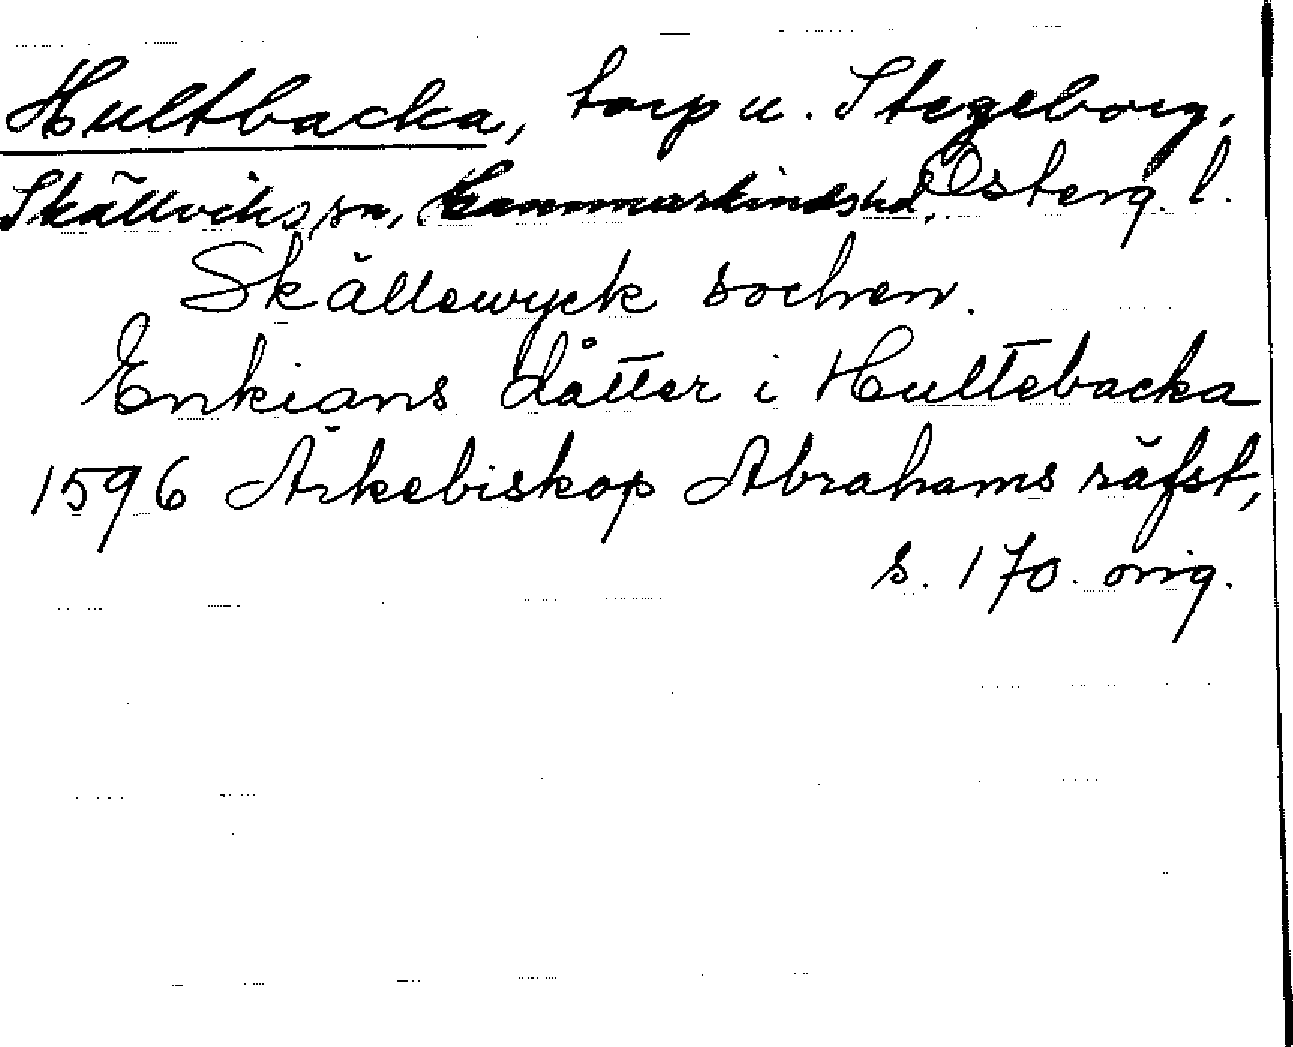 Hultbacka, torp u. Stegeborg,
Skällviks sn, Hammarkinds hd, Österg. l.
Skällewyck sochen.
Enkians dåtter i Hultebacka
1596 Ärkebiskop Abrahams räfst,
s. 170. orig.